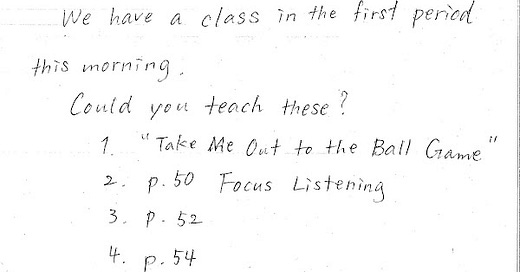 We have a class in the first period
this morning.
Could you teach these?
1. "Take Me Out to the Ball Game"
2. p.50 Focus Listening
3. p.52
4. p.54